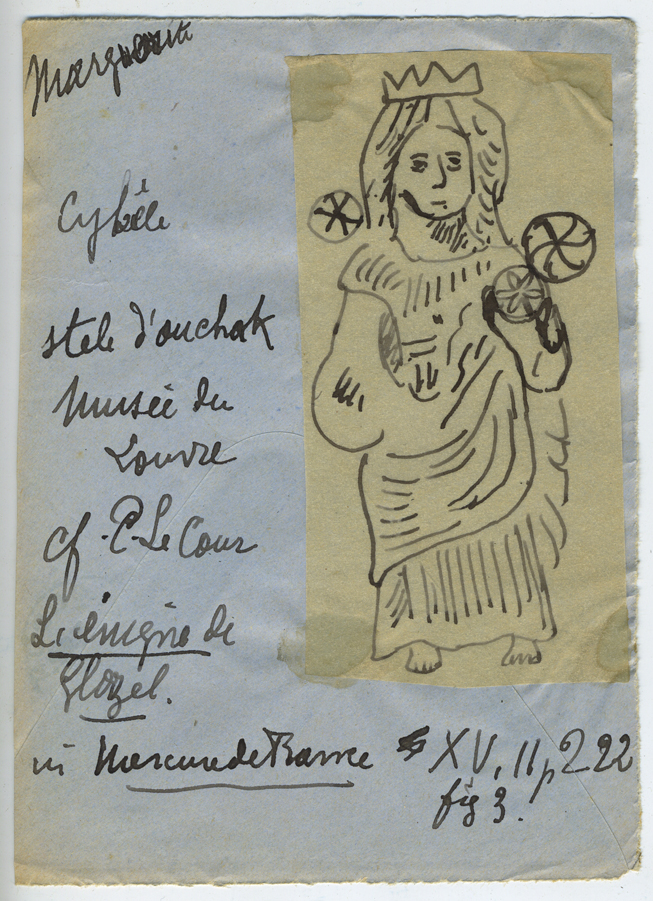 Marguerite
Cybèle
stele d'ouchak
Musée du
Louvre
cf. P. Le Cour
L'énigme de
Glozel.
in Mercure de France XV, 11, p 222
fig 3.